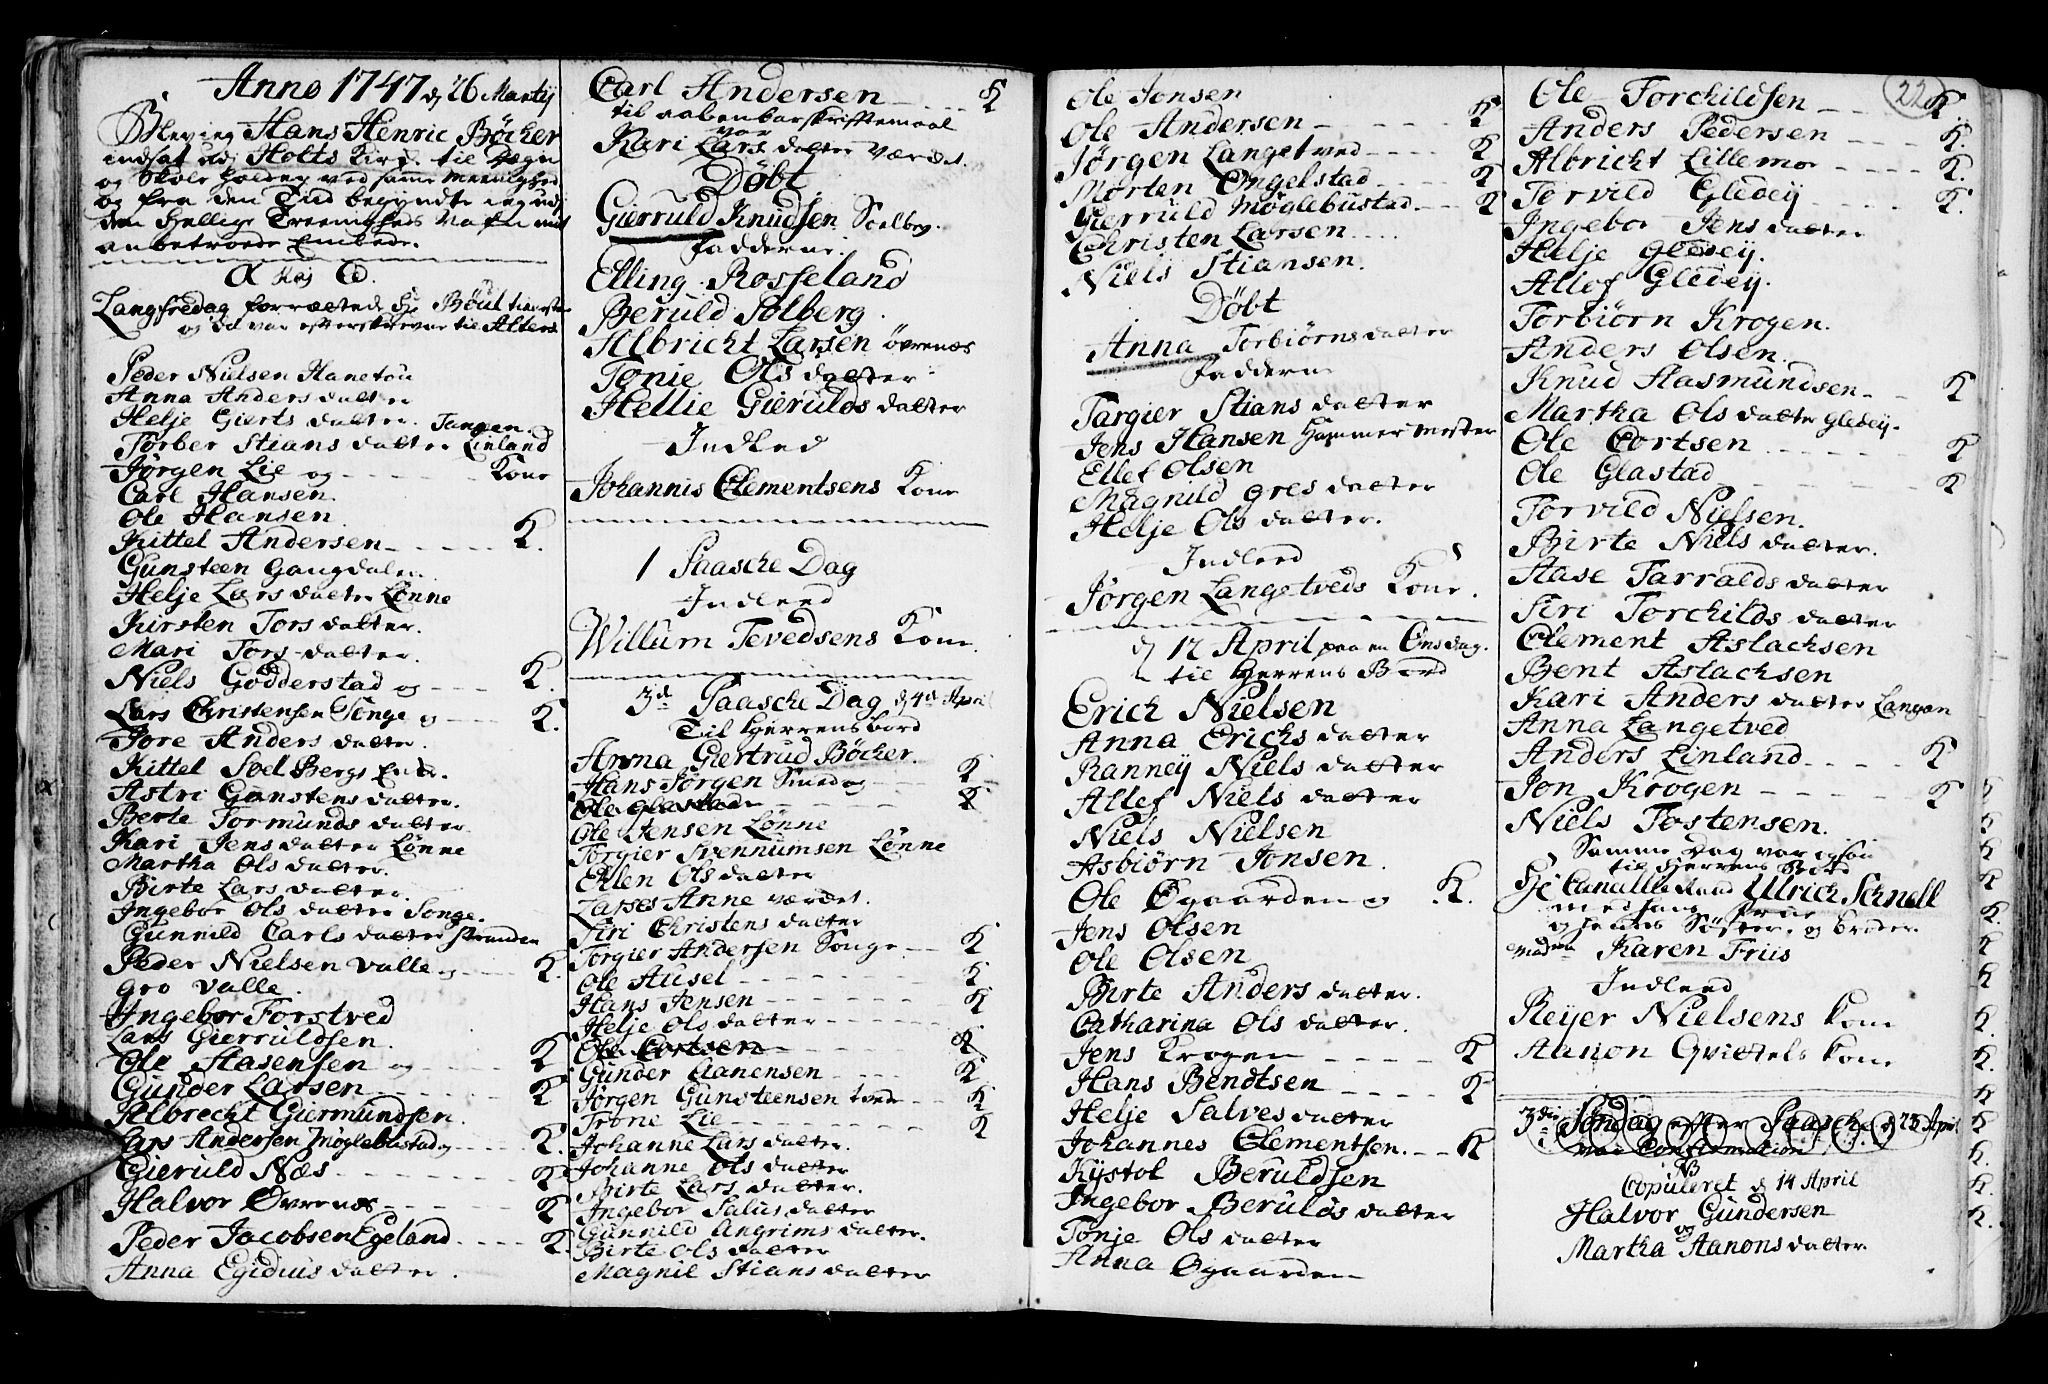 Anno 1747 d. 26 Martij
Blev ieg Hans Henric Böcher
indsat udj Holts Kird. til Degn
og Skole holder ved samme Meenighed
og fra den Tiid begyndte ieg udj
den Hellige Treenigheds Nafn mit
anbetroede Embede.
Langfredag forrættede Hr Böul tienesten
og da var efterskrevne til Alters
Peder Nielsen Hanetou
Anna Anders datter
Helje Gierts datter Tangen.
Torber Stians datter Linland
Jørgen Lie og Kone
Carl Hansen.
Ole Hansen
Kittel Andersen K.
Gunsteen Gangdalen
Helje Lars datter Lønne
Kirsten Tors datter.
Mari Tors datter.
Niels Godderstad og K.
Lars Christensen Songe og K.
Tore Anders datter.
Kittel Soelbergs Enke.
Astri Gunstens datter.
Berte Tormunds datter
Kari Jens datter Lønne
Martha Ols datter.
Birte Lars datter.
Ingebor Ols datter Songe.
Gunnild Carls datter Stranden
Peder Nielsen Valle og K.
Gro Valle.
Ingebor Forstved
Lars Gierruldsen.
Ole Aasensen og K
Gunder Larsen K
Albrecht Giermundsen.
Lars Andersen Møglebustad og K.
Gieruld Næs K
Halvor Øvrenæs K
Peder Jacobsen Egeland K.
Anna Egidius datter.
Carl Andersen K
til aabenbar skriftemaal
var
Kari Lars datter Værdet.
Döbt
Gierruld Knudsen Soelberg.
Faddere.
Elling Rosseland
Beruld Solberg.
Albricht Larsen övrenæs
Tonje Ols datter
Hellie Gierulds datter
Indled
Johannis Clementsens Kone
1 Paasche Dag
Indleed
Willum Tevedsens Kone.
3de Paasche Dag d. 4de April
Til Herrens bord
Anna Giertrud Böcher.
Hans Jörgen Smed og K
Ole Glastad K
Ole Stensen Lønne
Torgier Svennumsen Lønne
Ellen Ols datter
Larses Anne værdet.
Siri Christens datter
Torgier Andersen Songe K
Ole Ausel K
Hans Jensen K
Helje Ols datter
Ole Cortsen K
Gunder Aanensen K
Jørgen Gunsteensen tved K
Trone Lie K
Johanne Lars datter.
Johanne Ols datter
Birte Lars datter.
Ingebor Salus datter
Gunnild Angrims datter.
Birte Ols datter
Magnil Stians datter
Ole Jonsen
Ole Andersen K
Jörgen Langetved K
Morten Engelstad K
Gierruld Møglebustad K
Christen Larsen
Niels Stiansen.
Döbt
Anna Torbiörns datter
Faddere
Targier Stians datter
Jens Hansen Hammer mester
Ellef Olsen
Magnild Gres datter
Helje Ols datter.
Indleed
Jørgen Langetveds Kone.
d 12 April paa en Onsdag.
til Herrens Bord
Erich Nielsen
Anna Erichs datter
Ranney Niels datter
Allef Niels datter
Niels Nielsen
Asbiørn Jonsen.
Ole Øgaarden og K.
Jens Olsen
Ole Olsen
Birte Anders datter.
Catharina Ols datter.
Jens Krogen K
Hans Bendtsen K
Helje Salves datter
Johannes Clementsen K
Kystol Beruldsen
Ingebor Berulds datter
Tonje Ols datter
Anna Øgaarden
22
Ole Torchildsen K.
Anders Pedersen K.
Albricht Lillemo K.
Torvild Gledey K.
Ingebor Jens datter
Helje Gledey.
Allof Gledey.
Torbiörn Krogen.
Anders Olsen.
Knud Aasmundsen K
Martha Ols datter Gledey.
Ole Cortsen K
Ole Glastad K
Torvild Nielsen.
Birte Niels datter.
Aase Tarralds datter
Siri Torchilds datter
Clement Aslachsen
Bent Aslachsen
Kari Anders datter Langan
Anna Langetved
Anders Linland K
Jon Krogen K
Niels Tostensen.
Samme Dag var ogsaa
til Herrens Bord
Hr Cancellie Raad Ulrich Schnell
med hans Frue
og hendes Søster, og broder
Madm Karen Friis
Indleed
Reyer Nielsens kone
Aanon Qvittels kone
3de Söndag efter Paasche d 23 April
var Confirmation
NB
Copuleret d 14 April
Halvor Gundersen
og
Martha Aanons datter